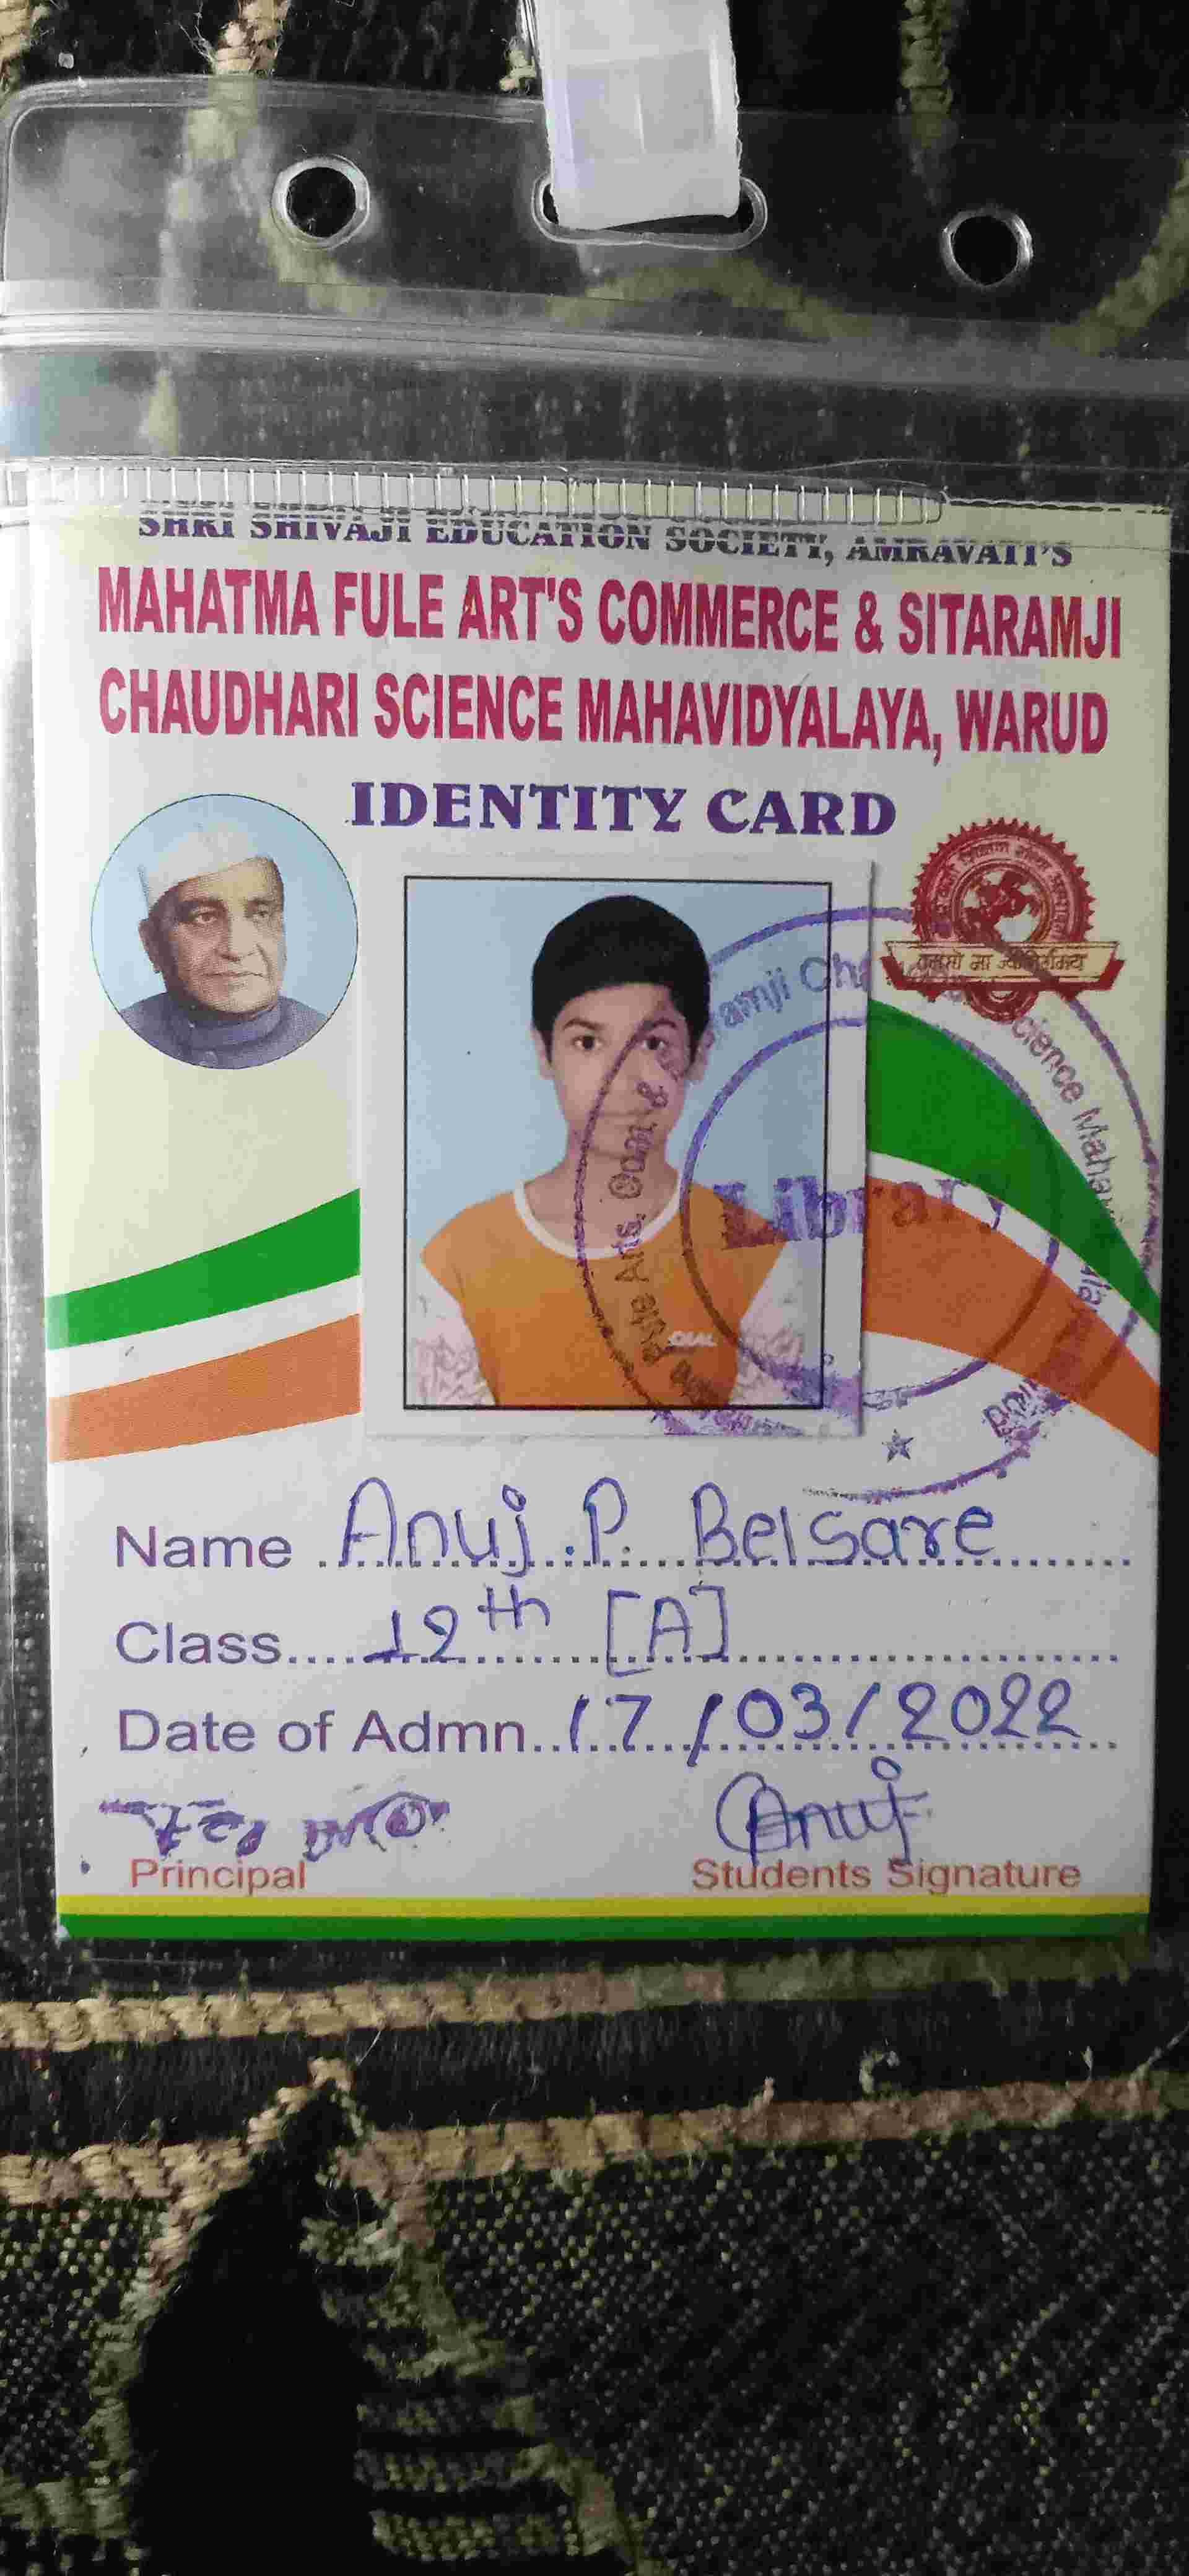 SHRI SHIVAJI EDUCATION SOCIETY, AMRAVATI'S
MAHATMA FULE ART'S COMMERCE & SITARAMJI
CHAUDHARI SCIENCE MAHAVIDYALAYA, WARUD
IDENTITY CARD
तमसो मा ज्योतिर्गमय
Library
OIAL
Name Anuj P. Belsare
Class 12th [A]
Date of Admn. 17/03/2022
Anuj
Principal Students Signature